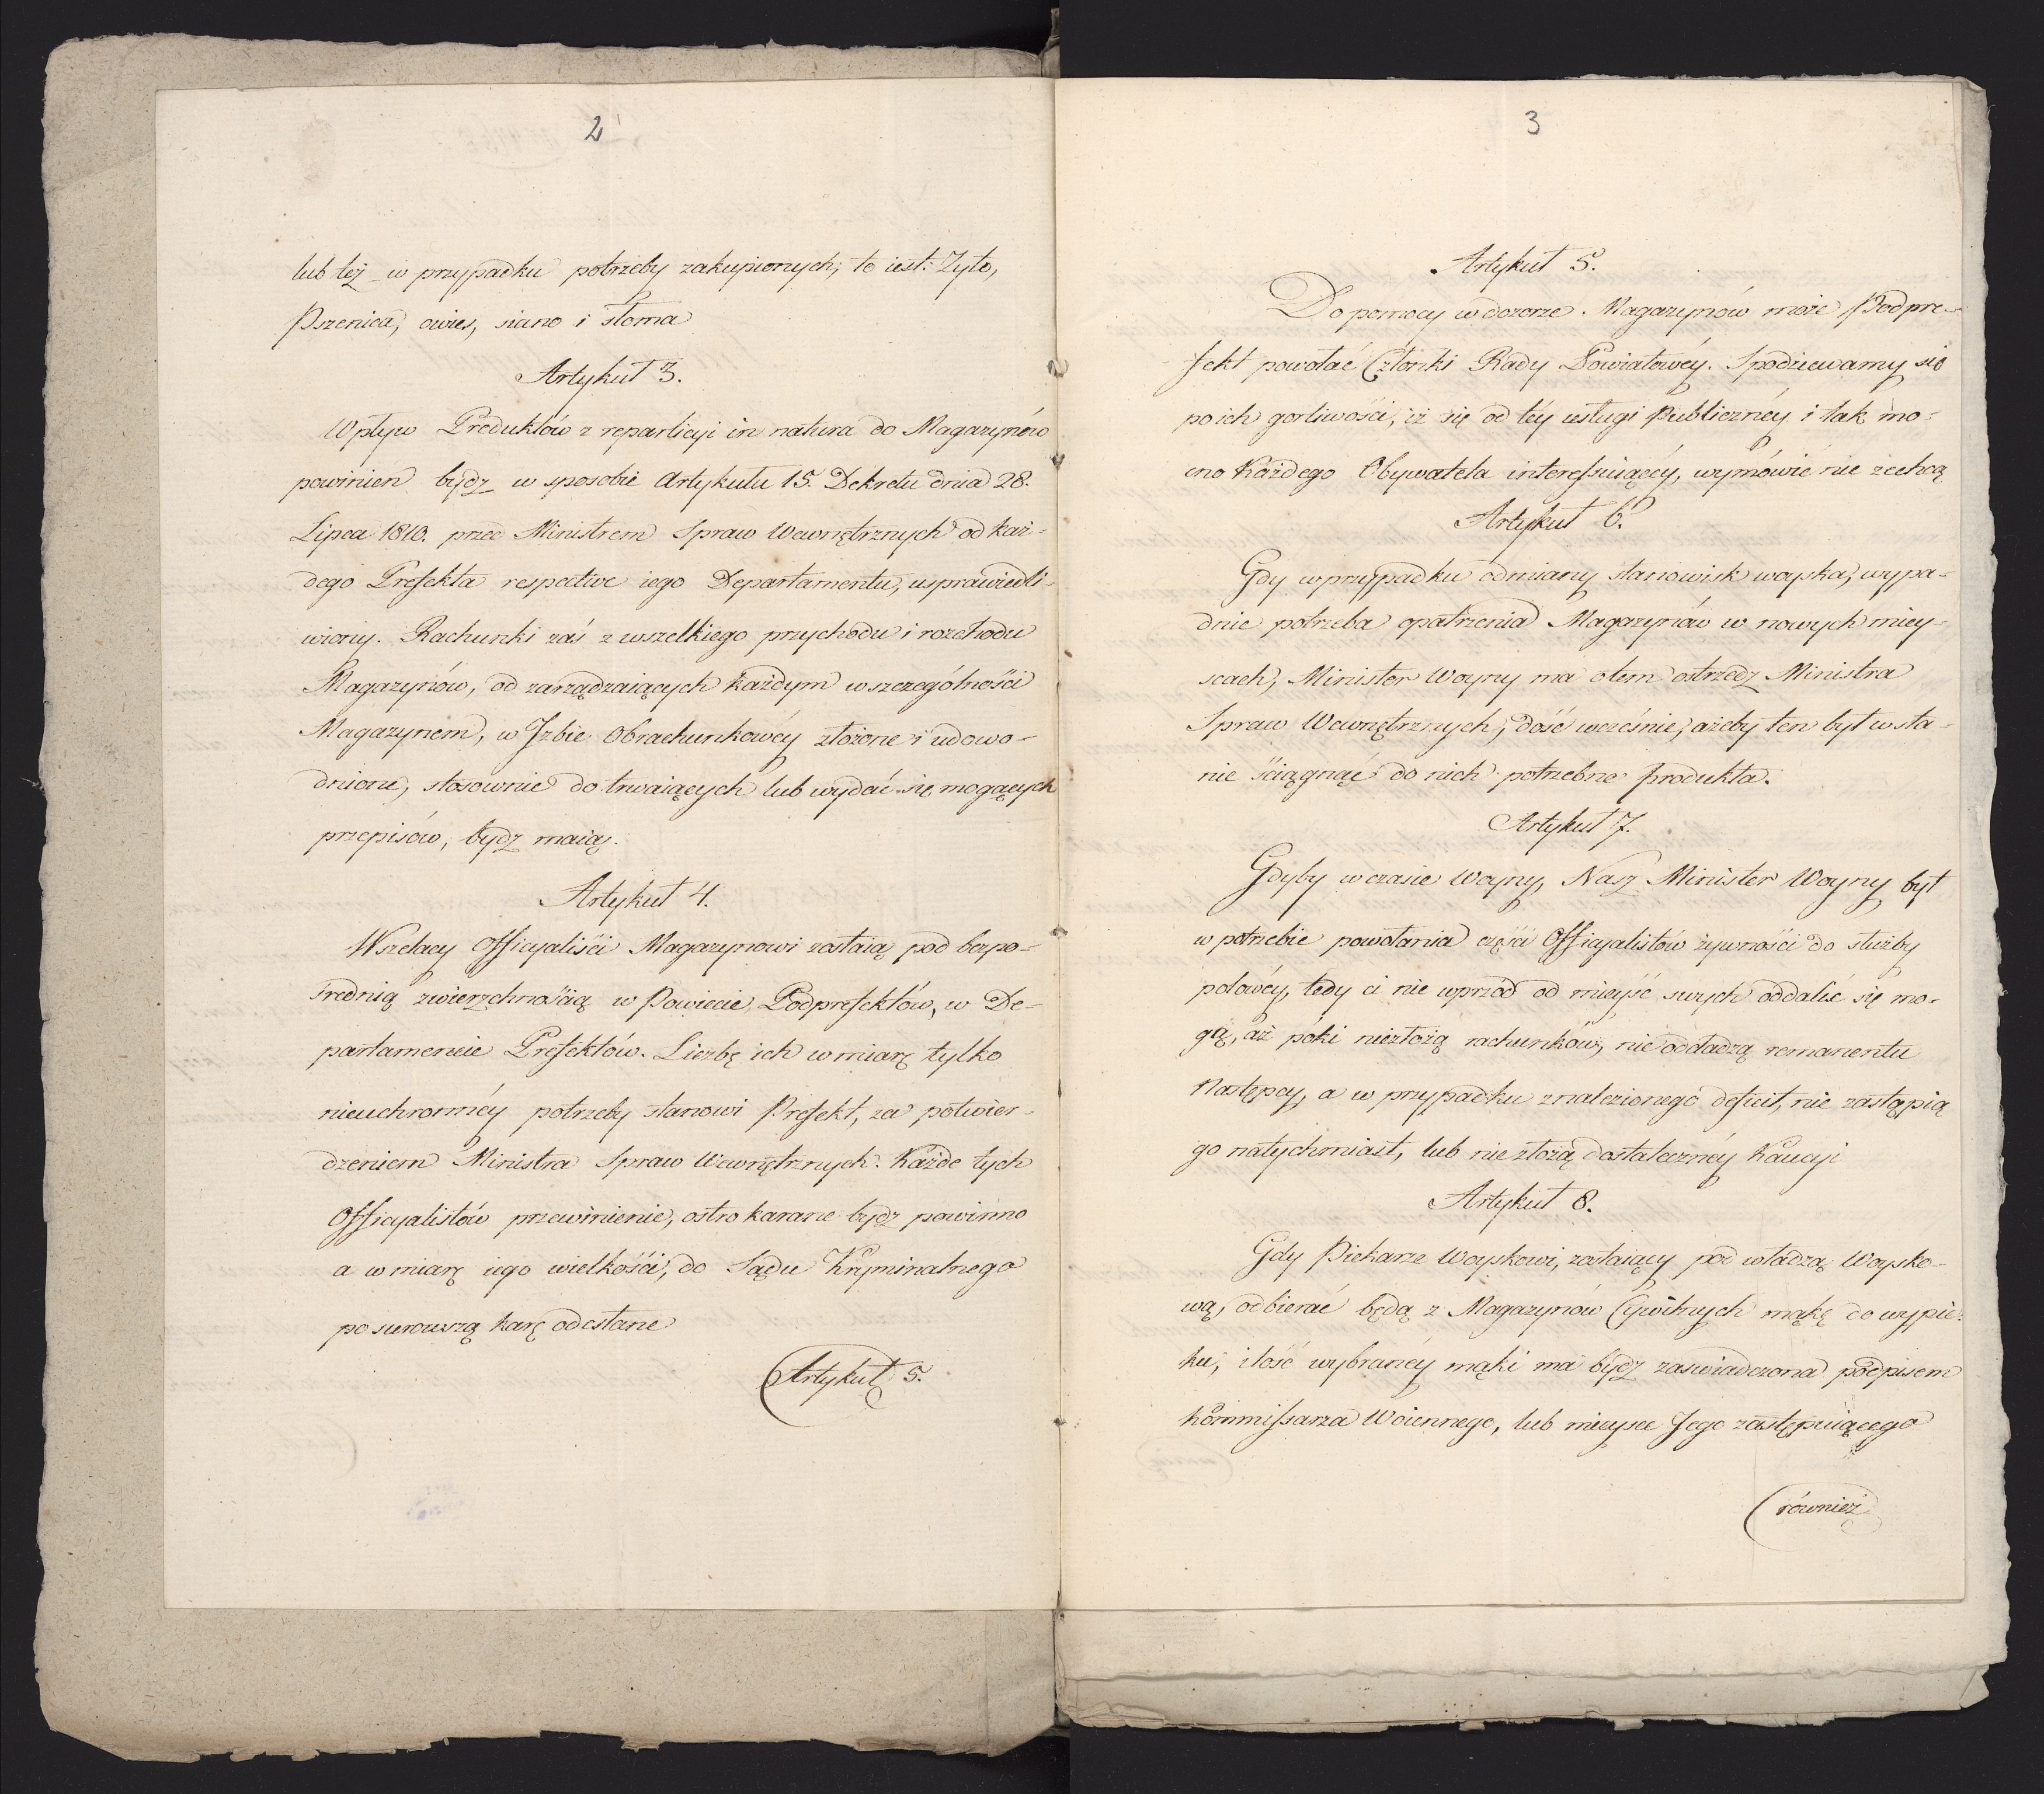 2
lub też w przypadku potrzeby zakupionych, to iest: Zyto,
Pszenica, owies, siano i słoma
Artykuł 3.
Wpływ Produktów z repartícyi in natura do Magazynów
powinien bydź w sposobie Artykułu 15. Dekretu dnia 28.
Lipca 1810. przed Ministrem Spraw Wewnętrznych od każ-
dego Prefekta respective iego Departamentu, usprawiedli-
wiony. Rachunki zaś z wszelkiego przychodu i rozchodu
Magazynów, od zarządzaiących każdym w szczególności
Magazynem, w Izbie Obrachunkowéy złożone i udowo-
dnione, stosownie do trwaiących lub wydać się mogących
przepisów, bydź maią.
Artykuł 4.
Wszelacy Officyaliści Magazynowi zostaią pod bezpo-
średnią zwierzchnością w Powiecie, Podprefektów, w De-
partamencie Prefektów. Liczbę ich w miarę tylko
nieuchronnéy potrzeby stanowi Prefekt, za potwier-
dzeniem Ministra Spraw Wewnętrznych. Każde tych
Officyalistów przewinienie, ostro karane bydź powinno
a w miarę iego wielkości, do Sądu Kryminalnego
po surowszą karę odesłane
Artykuł 5.
3
Artykuł 5.
Do pomocy w dozorze Magazynów może Podpre-
fekt powołać Członki Rady Powiatowéy. Spodziewamy się
po ich gorliwości, iż się od téy usługi Publicznéy i tak mo-
cno Każdego Obywatela interessuiącéy, wymówić nie zechcą
Artykuł 6.
Gdy w przypadku odmiany stanowisk woyska, wypa-
dnie potrzeba opatrzenia Magazynów w nowych miey-
scach, Minister Woyny ma o tem ostrzedz Ministra
Spraw Wewnętrznych, dość wcześnie, ażeby ten był w sta-
nie ściągnąć do nich potrzebne produkta.
Artykuł 7.
Gdyby w czasie Woyny, Nasz Minister Woyny był
w potrzebie powołania części Officyalistów żywności do służby
polowéy, tedy ci nie wprzód od mieysc swych oddalić się mo-
gą, aż póki niezłożą rachunków, nie oddadzą remanentu
Następcy, a w przypadku znalezionego deficit, nie zastąpią
go natychmiast, lub nie złożą dostatecznéy Kaucyi
Artykuł 8.
Gdy Piekarze Woyskowi, zostaiący pod władzą Woysko-
wą, odbierać będą z Magazynów Cywilnych mąkę do wypie-
ku, ilość wybranéy mąki ma bydź zaswiadczona podpisem
Kommissarza Woiennego, lub mieysce Jego zastępuiącego
również